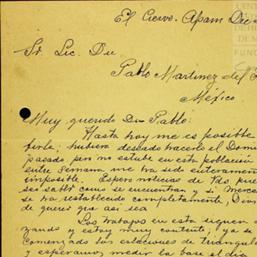 El Cuervo. Apam Dic
Sr. Lic. Dn.
Pablo Martinez del
México
Muy querido Dn Pablo:
Hasta hoy me es posible
hubiera deseado hacerlo el Domi
pasado pero no estube en esta población
entre semana me ha sido enteramen
imposible. Espero noticias de Uds pue
ser saber como se encuentran y si Merce
se ha restablecido completamente,
de querer que asi sea.
Los trabajos en esta siguen
zando y estoy muy contento, ya se
comenzado las estaciones de triangula
y esperamos medir la base el dia
CENT
DE M
FUND